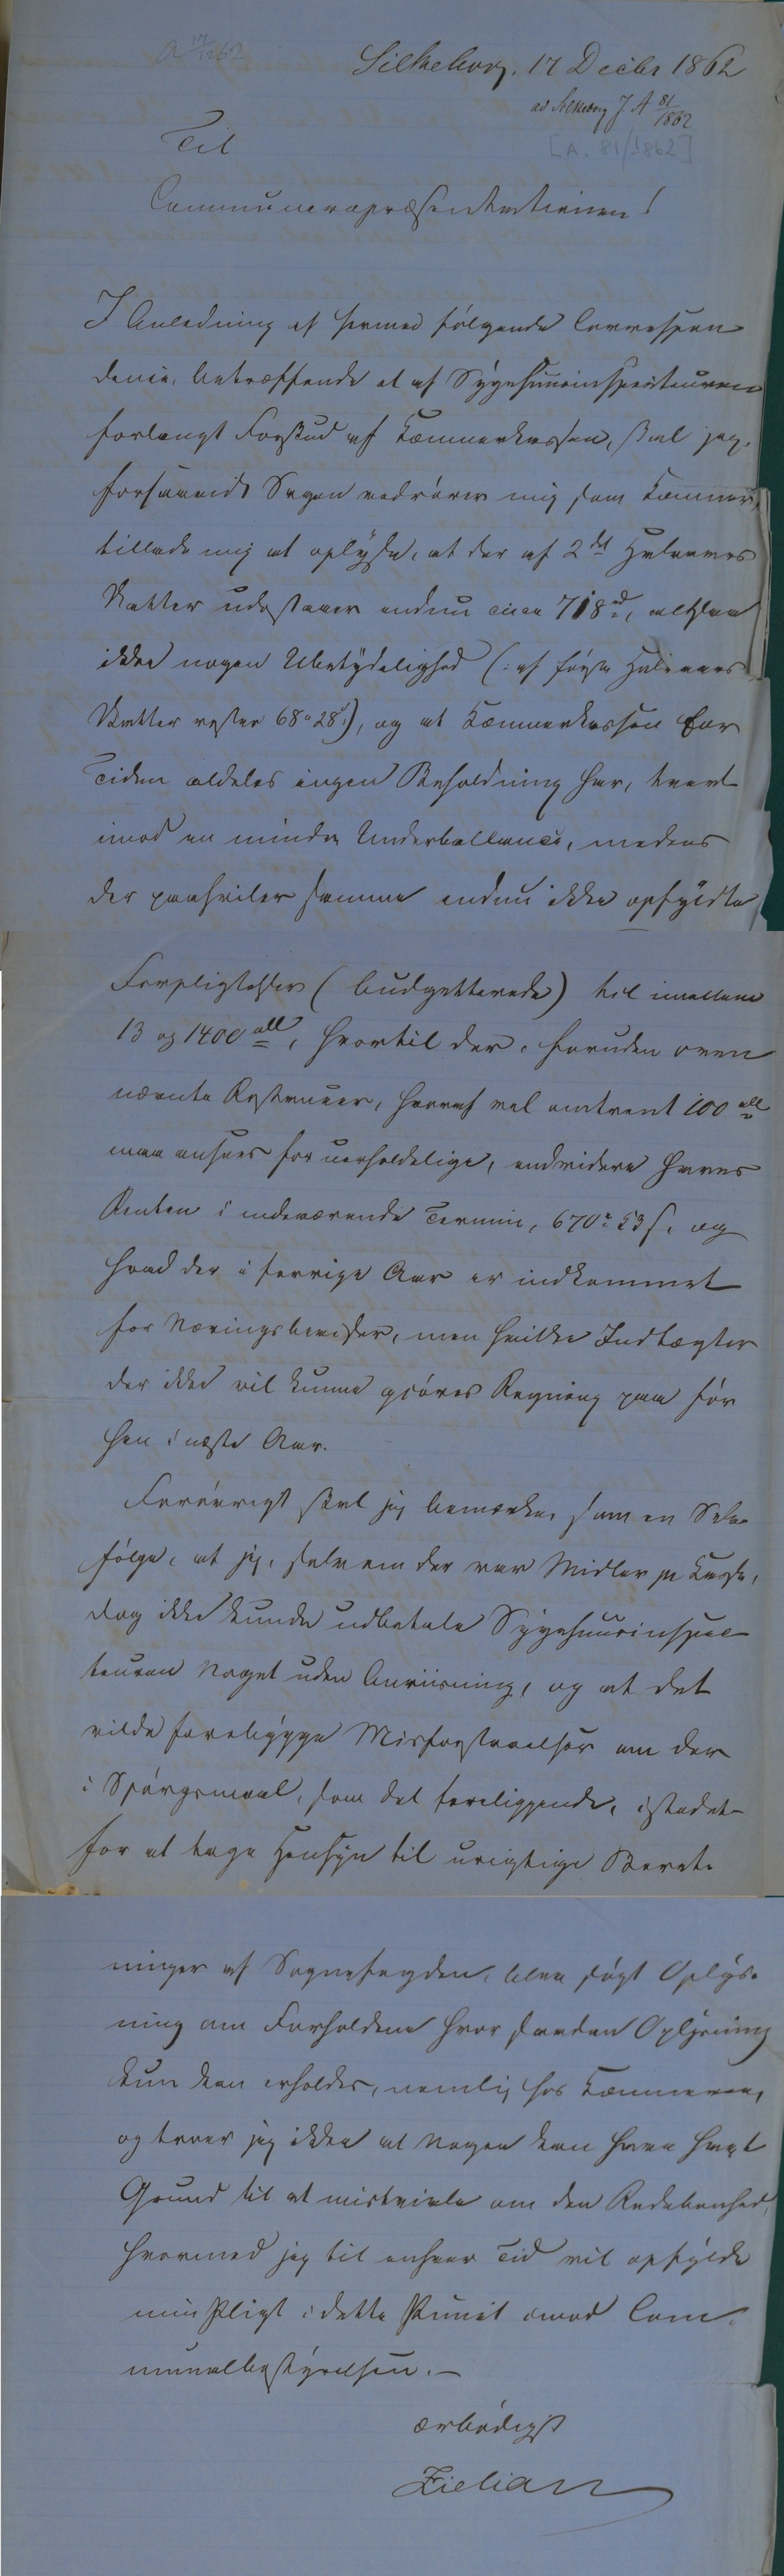 a 17/12 62
Silkeborg, 17 Decbr 1862
ad Silkeborg J. A 81/1862
[A. 81/1862]
Til
Communerepræsentationen!
I Anledning af hermed følgende Correspon-
dence, betræffende et af Sygehuusinspecteuren
forlangt Forskud af Kæmnerkassen, skal jeg,
forsaavidt Sagen vedrører mig som Kæmner,
tillade mig at oplyse, at der af 2det Halvaars
Skatter udestaaer endnu circa 718rd, altsaa
ikke nogen Ubetydelighed (: af første Halvaars
Skatter rester 68rd 28s:), og at Kæmnerkassen for
Tiden aldeles ingen Beholdning har, tvert
imod en mindre Underballance, medens
der paahviler samme endnu ikke opfyldte
Forpligtelser (budgetterede) til imellem
13 og 1400 , hvortil der, foruden oven
nævnte Restancer, hvoraf vel omtrent 100
maa ansees for uerholdelige, endvidere haves
Renten i indeværende Termin, 670 53 s. og
hvad der i forrige Aar er indkommet
for Næringsbeviser, men hvilke Indtægter
der ikke vil kunne gjøres Regning paa før
hen i næste Aar.
Forøvrigt skal jeg bemærke, som en Selv-
følge, at jeg, selv om der var Midler pr Kasse,
dog ikke kunde udbetale Sygehuusinspec-
teuren Noget uden Anviisning, og at det
vilde forebygge Misforstaaelser om der
i Spørgsmaal, som det foreliggende, istedet-
for at tage Hensyn til urigtige Beret-
ninger af Sognefogden, blev søgt Oplys-
ning om Forholdene hvor saadan Oplysning
kun kan erholdes, nemlig hos Kæmneren,
og troer jeg ikke at Nogen kan have havt
Grund til at mistvivle om den Redebonhed,
hvormed jeg til enhver Tid vil opfylde
min Pligt i dette Punct imod Com-
munalbestyrelsen.—
ærbødigst
Zielian